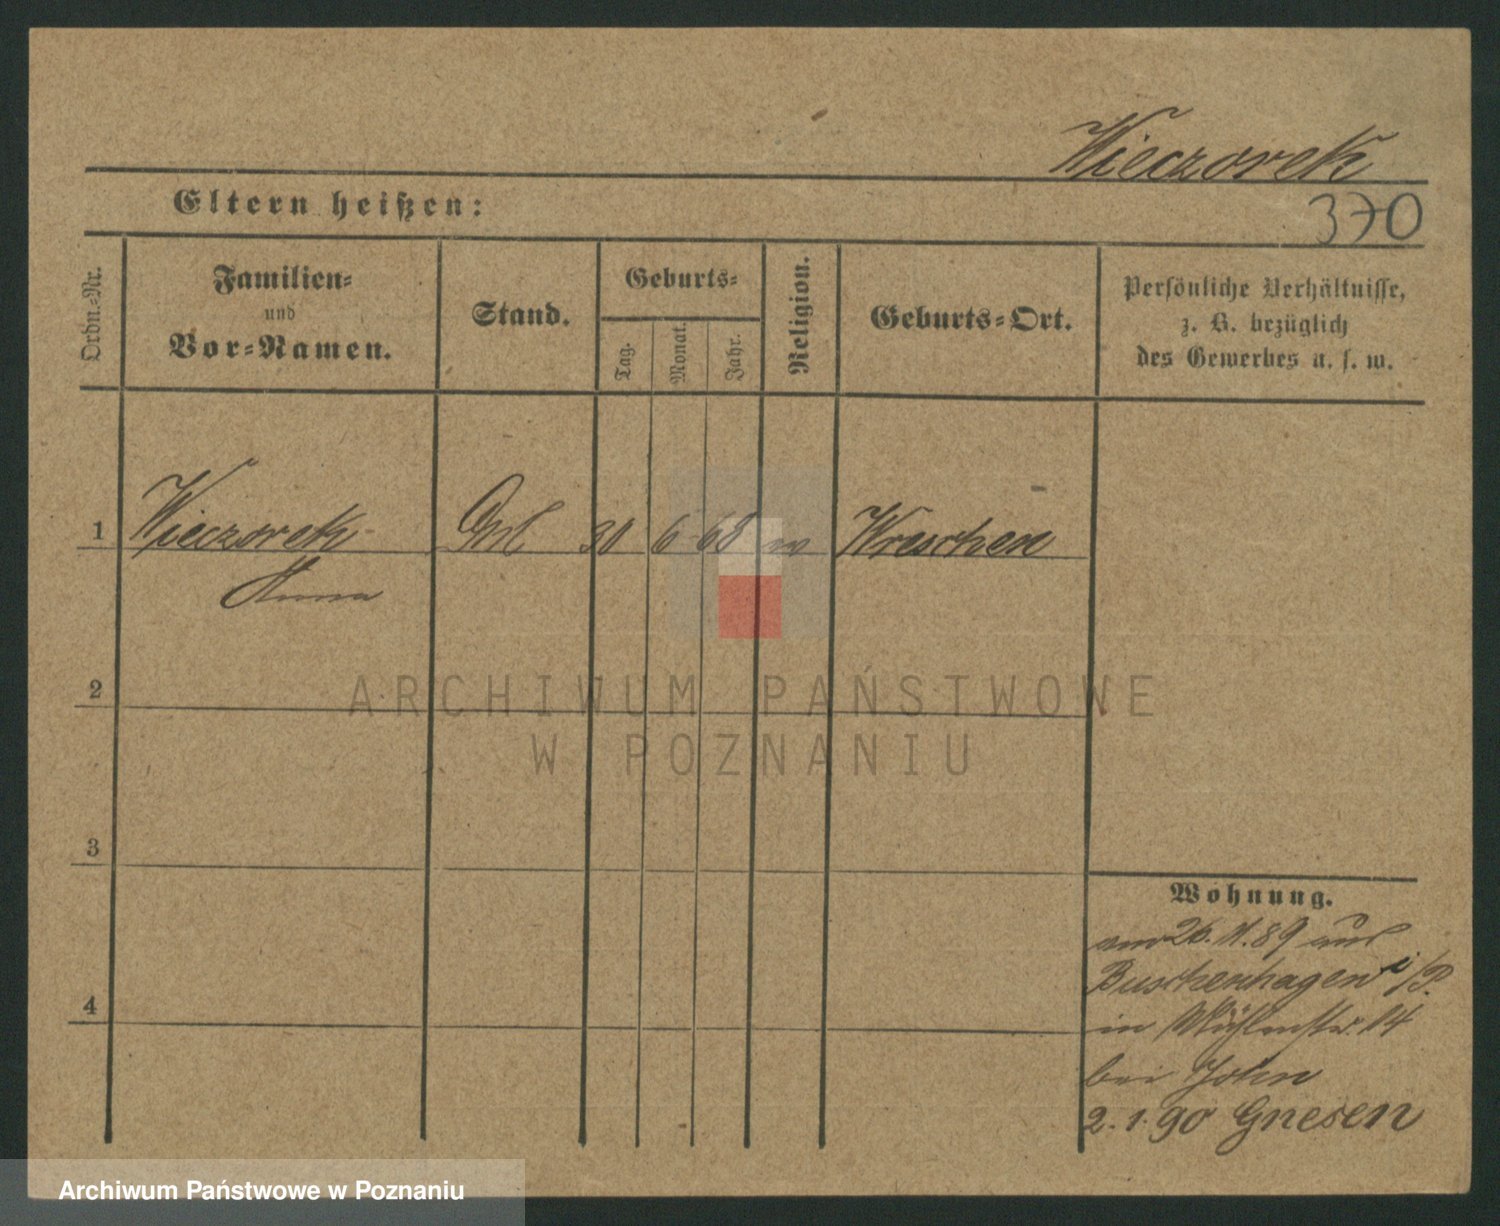 Wieczorek
Eltern heißen:
370
Ordn.-Nr.
Familien-
und
Vor-Namen.
Stand.
Geburts-
Tag.
Monat.
Jahr.
Religion.
Geburts-Ort.
Persönliche Verhältnisse,
z. B. bezüglich
des Gewerbes u. s. w.
1 Wieczorek 30 6 68 Wreschen
Anna
2
ARCHIWUM PAŃSTWOWE
W POZNANIU
3
4
Wohnung.
26. 11. 89 aus
Buschenhagen i/P.
in Mühlenstr. 14
bei John
2. 1. 90 Gnesen
Archiwum Państwowe w Poznaniu